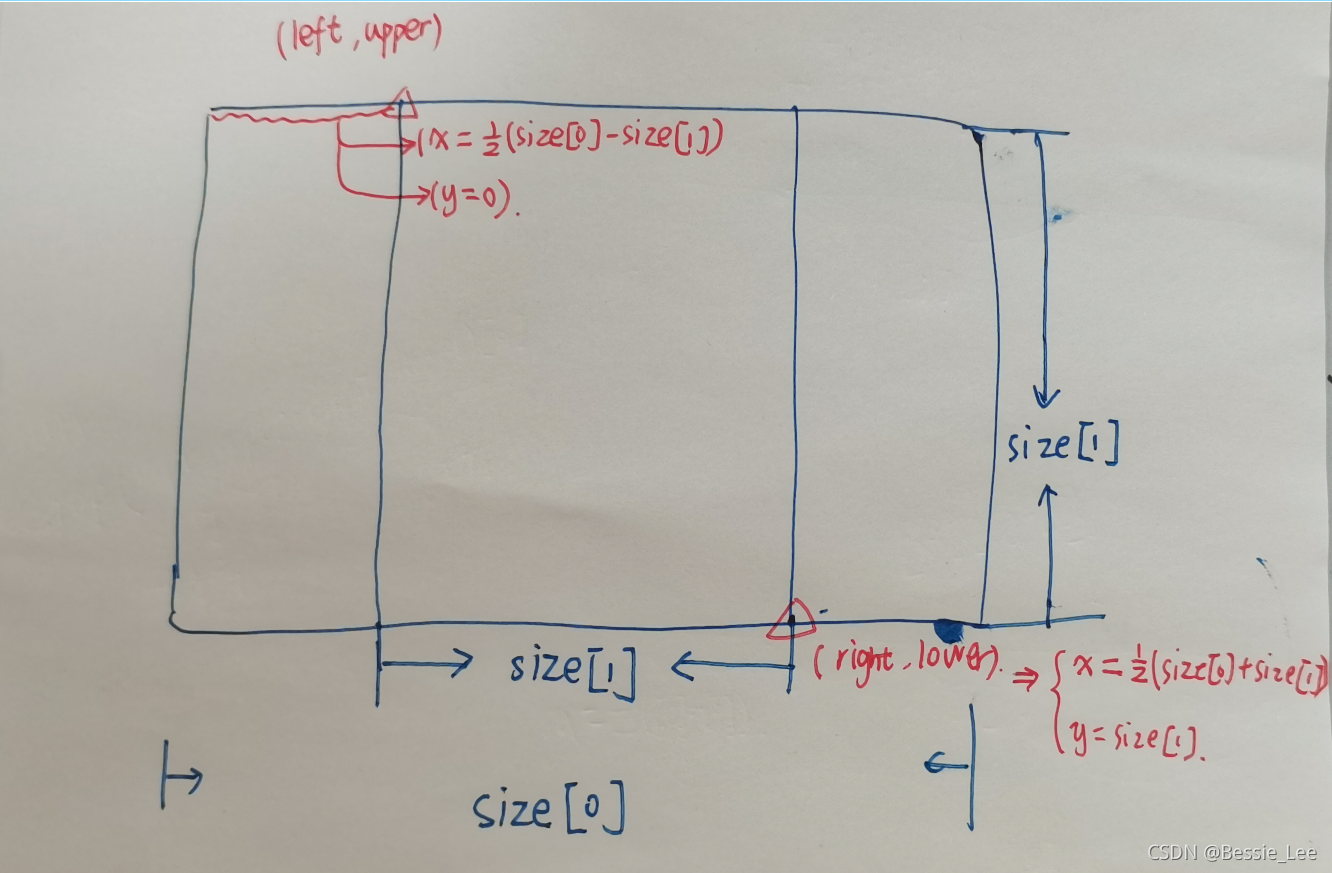 (left, upper)
(x = 1/2(size[0]-size[1])
(y=0).
size[1]
size[1]
(right, lower). ⇒ { x = 1/2(size[0]+size[1])
y = size[1].
size[0]
CSDN @Bessie_Lee